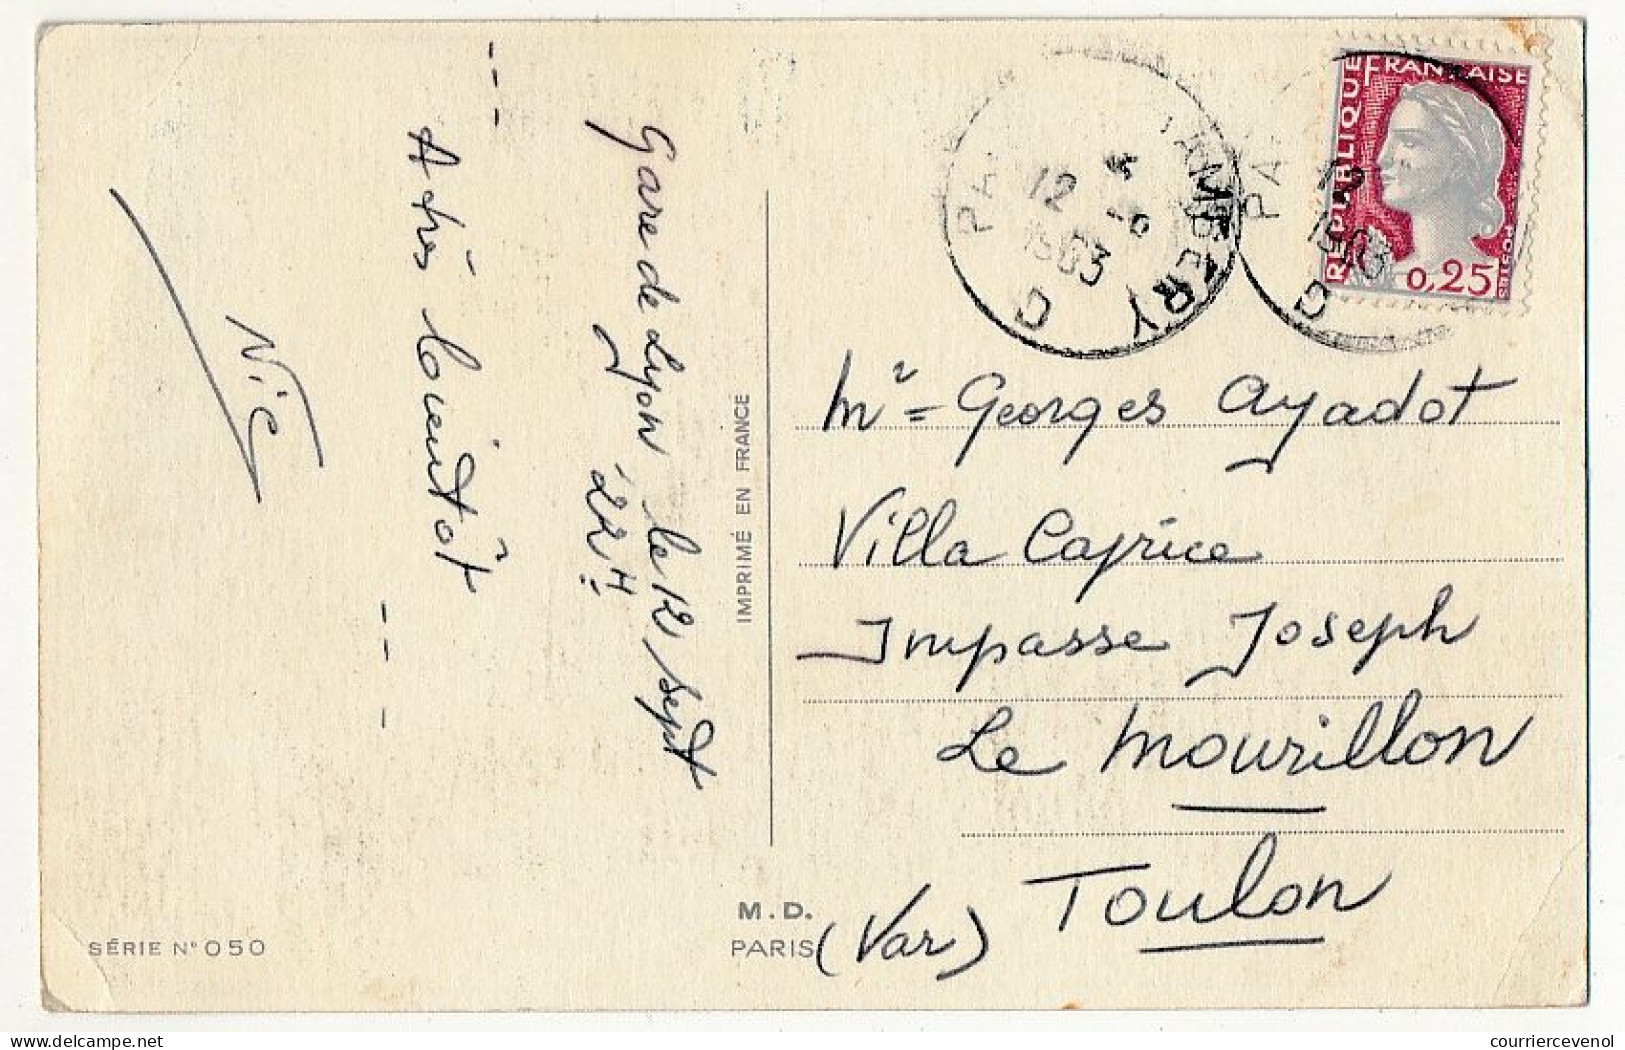 Gare de Lyon le 12 sept
22 H
A très bientôt
Nic
SÉRIE N° 050
IMPRIMÉ EN FRANCE
M. D.
PARIS
RÉPUBLIQUE FRANÇAISE
POSTES
0,25
12
1963
Mr = Georges Ayadot
Villa Caprice
Impasse Joseph
Le Mourillon
Toulon
(Var)
courriercevenol